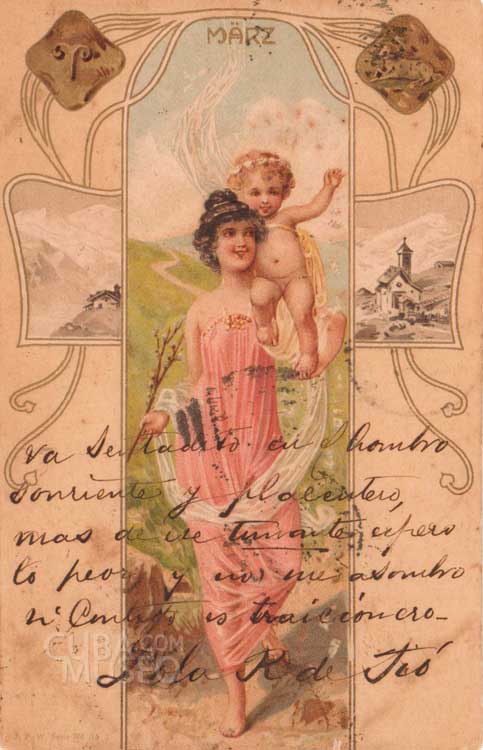 MÄRZ
va sentadito en el hombro
sonriente y placentero,
mas de ese tunante espero
lo peor y no me asombro
es traicciónero-
Lola R de Tió
CUBA.COM
MUSEO